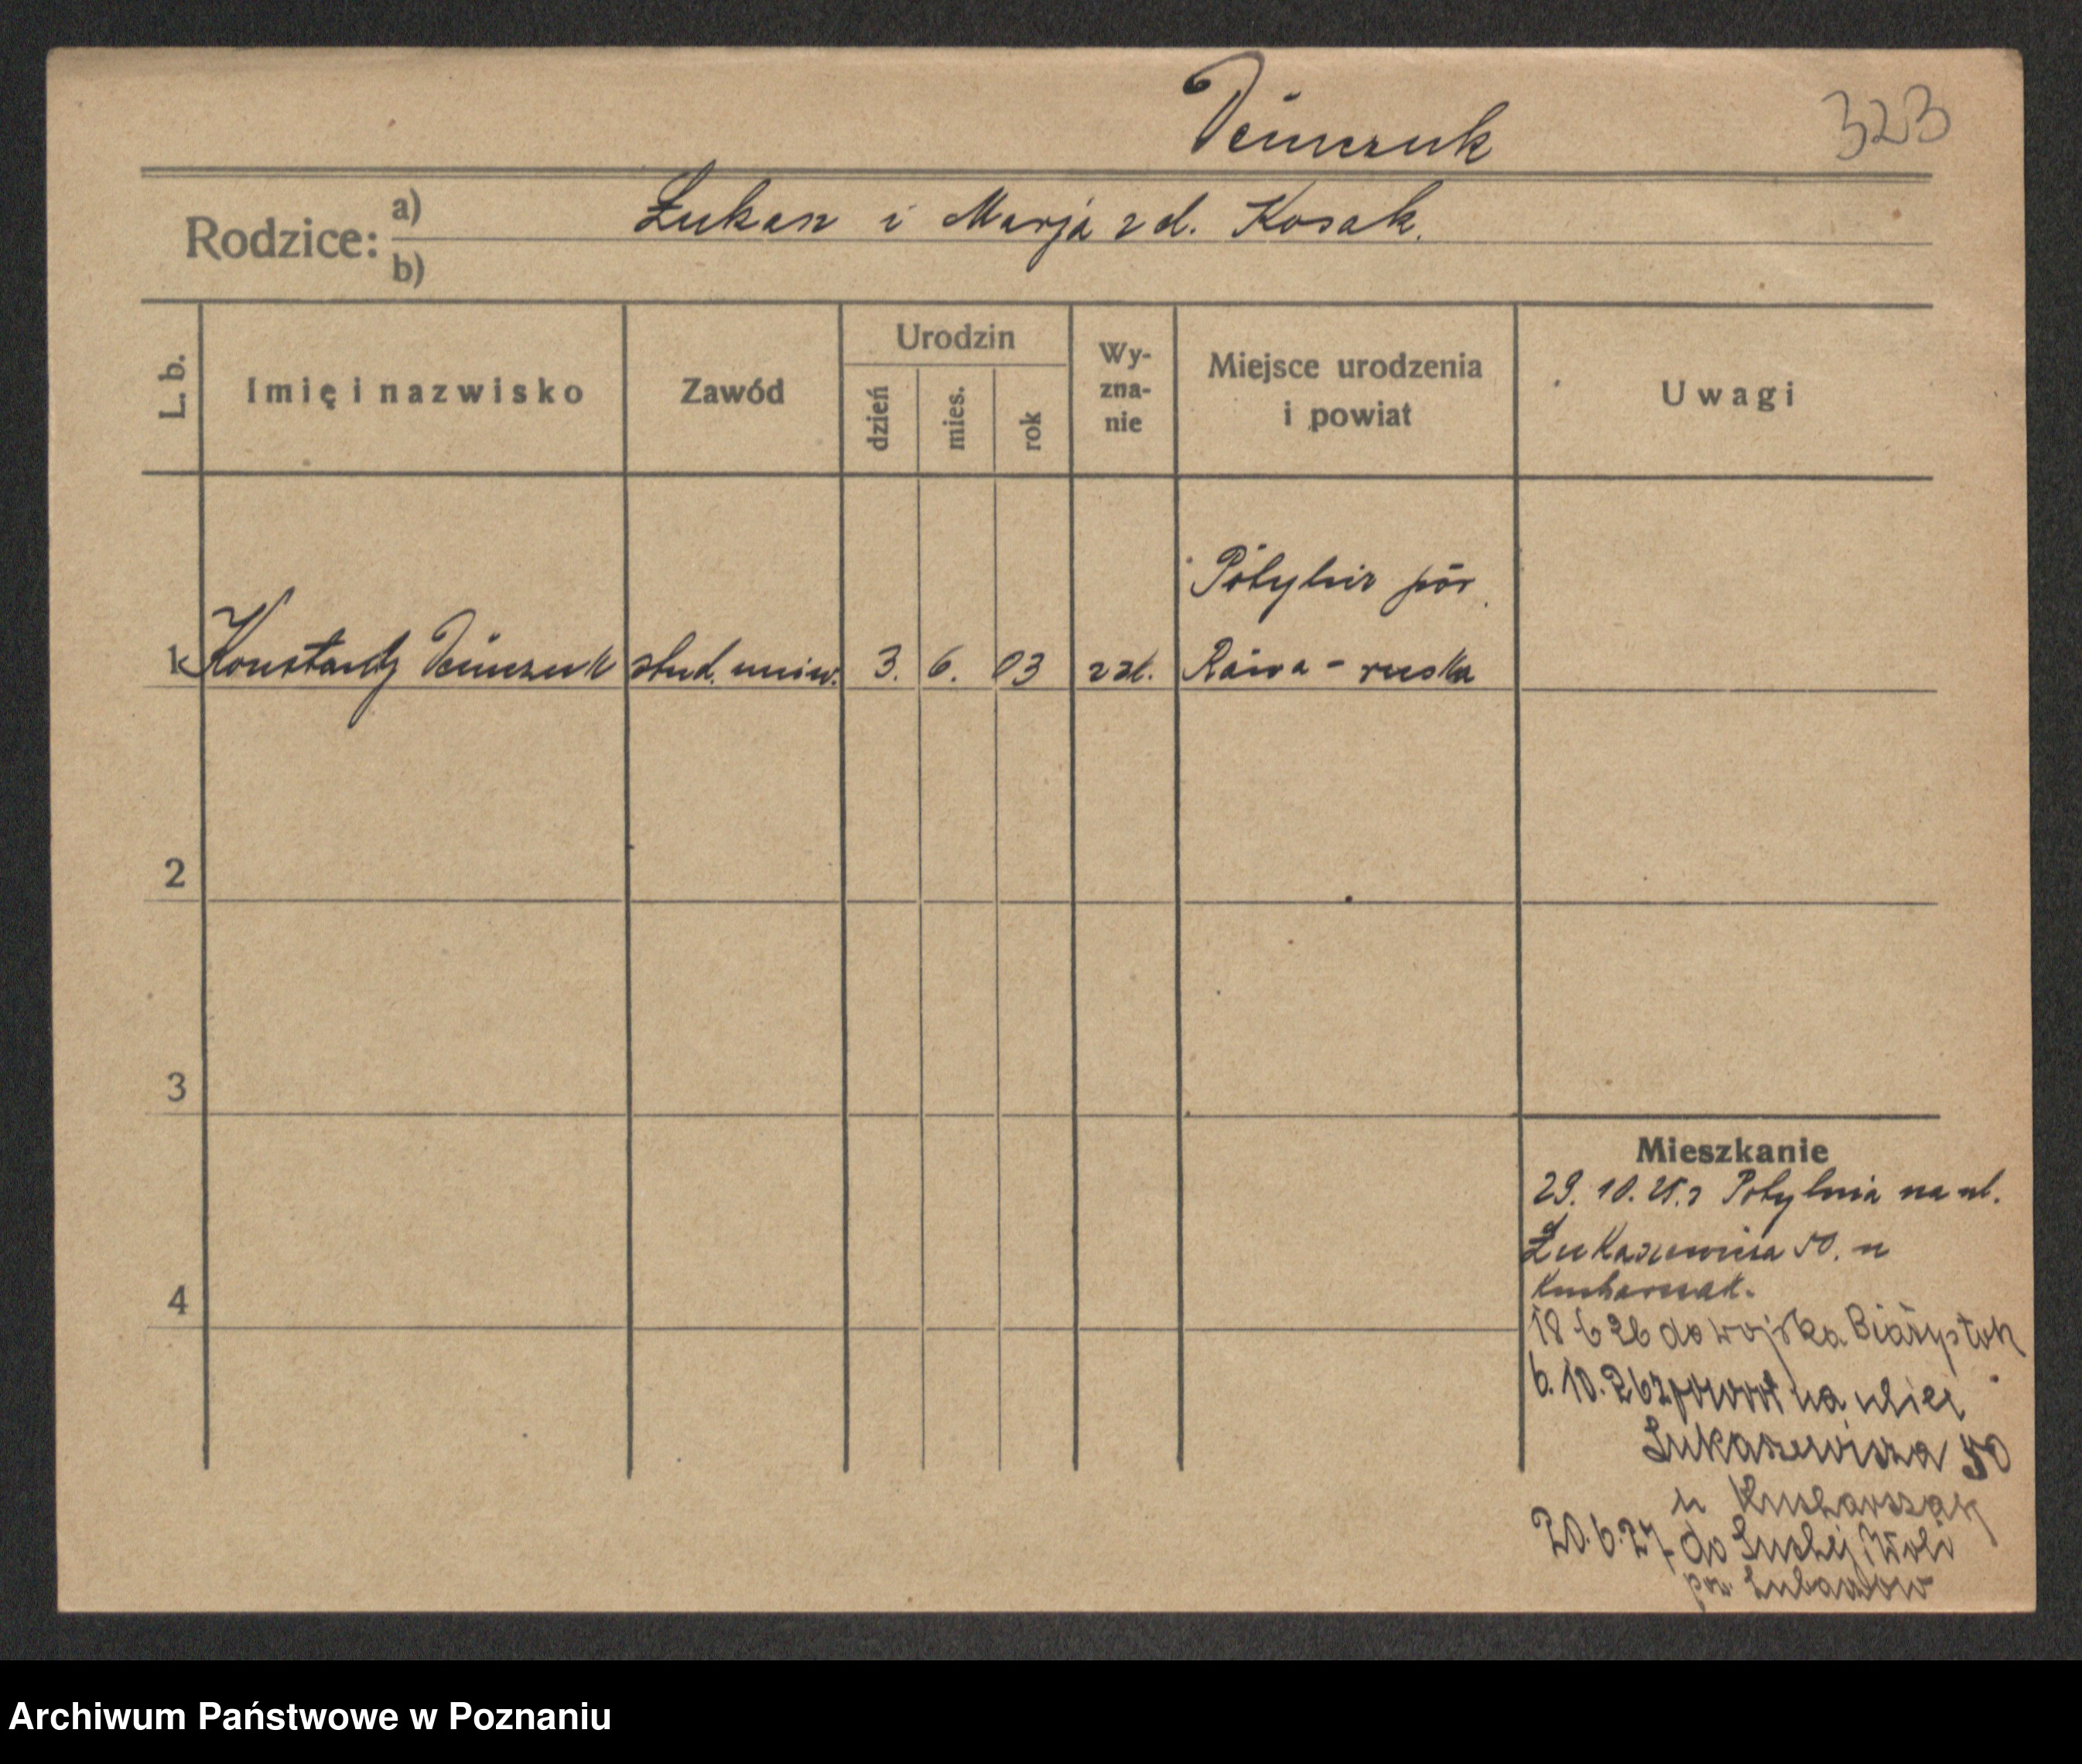 323
Rodzice: a) Łukasz i Marja z d. Kosak.
b)
L. b.
Imię i nazwisko
Zawód
Urodzin
dzień
mies.
rok
Wy-
zna-
nie
Miejsce urodzenia
i powiat
Uwagi
1 Konstanty stud. uniw. 3. 6. 03 pow.
Rawa - ruska
2
3
4
Mieszkanie
29. 10. 25. z Potylicza na ul.
Łukaszewicza 50. u
Kucharszak.
18 6 26 do wojska Białystok
6. 10. 26 zpowrot na ulicę
Łukaszewicza 50
u Kucharszak
20. 6. 27 do Suchej Woli
pow. Lubaczów
Archiwum Państwowe w Poznaniu